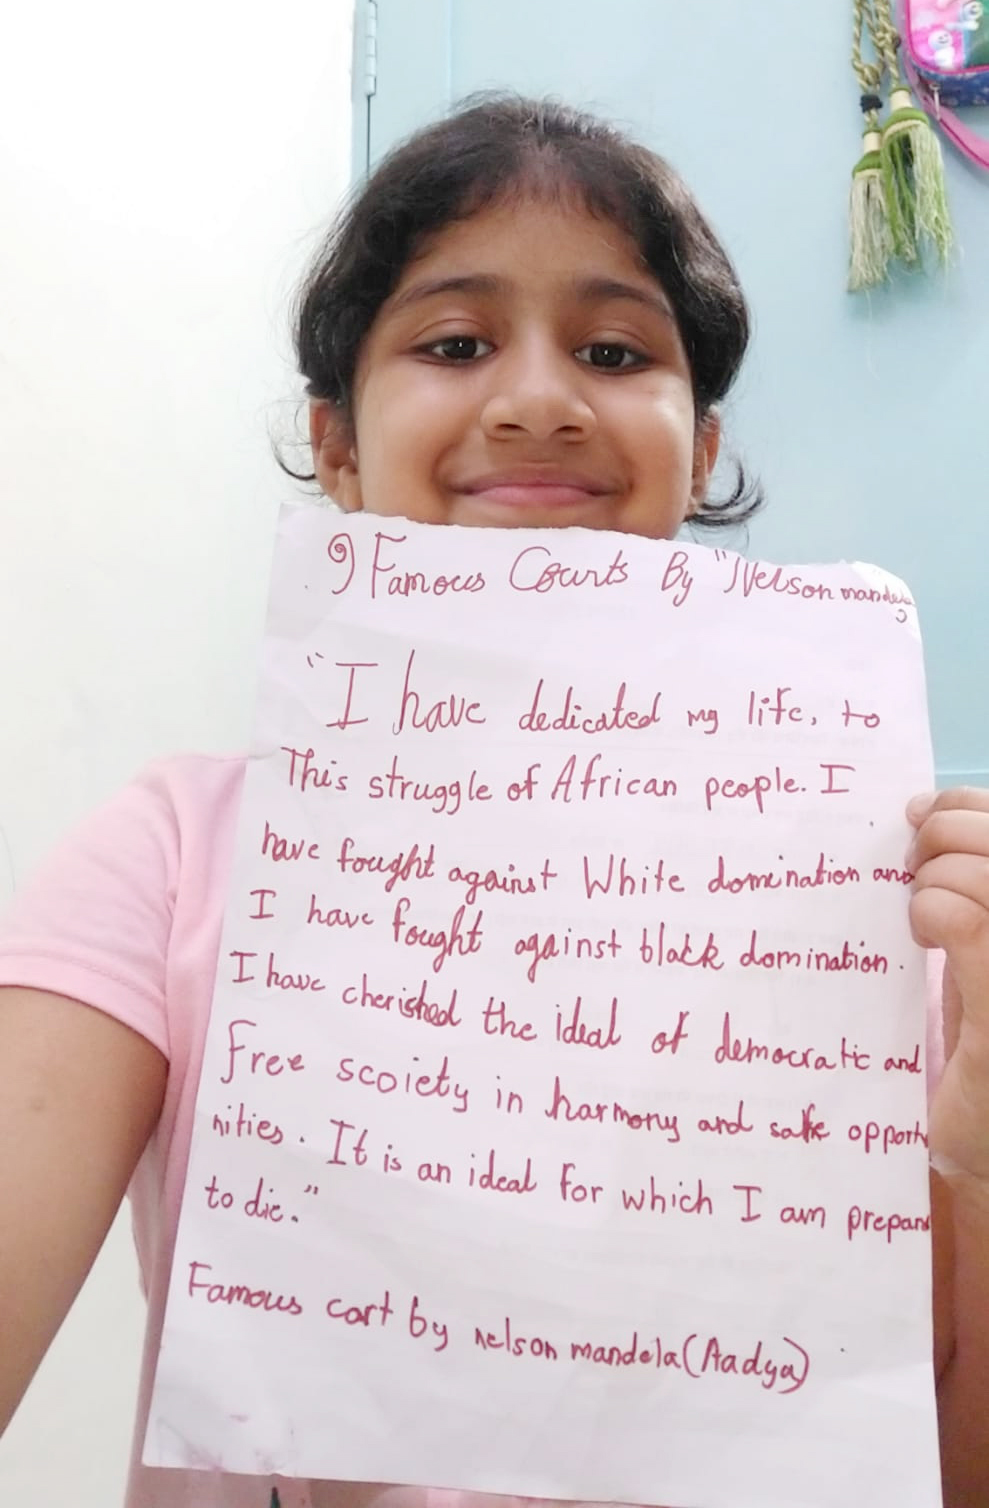 9 Famous Courts By "Nelson mandela"
"I have dedicated my life, to
This struggle of African people. I
have fought against White domination and
I have fought against black domination.
I have cherished the ideal of democratic and
free scoiety in harmony and opportu
nities. It is an ideal for which I am prepare
to die."
Famous cort by nelson mandela (Aadya)